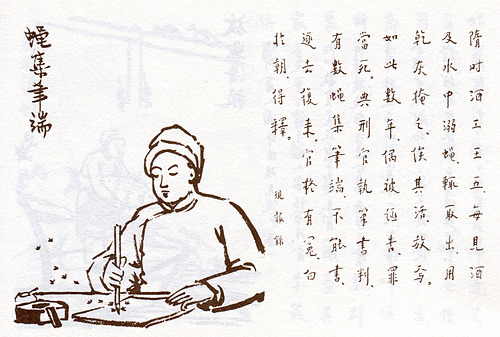 蠅集筆端
隋时酒工王五。每見酒
及水中溺蠅。輒取出。用
乾灰掩之。俟其活。放
如此數年。偶被誣告。罪
當死。典刑官執筆書判。
有數蠅集筆端。不能書。
逐去復来。官 有冤。白
於朝。得釋。
現報錄